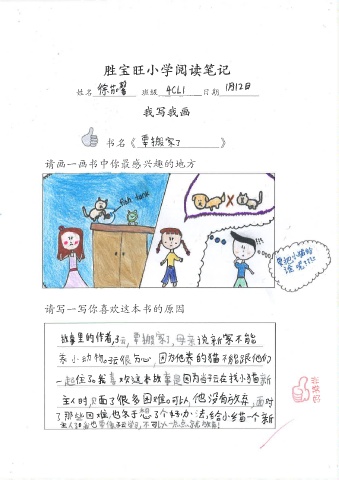 胜宝旺小学阅读笔记
姓名 徐 班级 4CL1 日期 1月12日
我写我画
书名《要搬家了》
请画一画书中你最感兴趣的地方
fish tank
要把小猫给
谁呢???
请写一写你喜欢这本书的原因
故事里的作者,云,要搬家了,母亲说新家不能
养小动物。云很伤心,因为他养的猫不能跟他们
一起住了。我喜欢这本故事是因为当云在找小猫新
主人时,面了很多困难。可以,他没有放弃,面对
了那些困难,也为于想了个好办法,给小猫一个新
主人
非常好